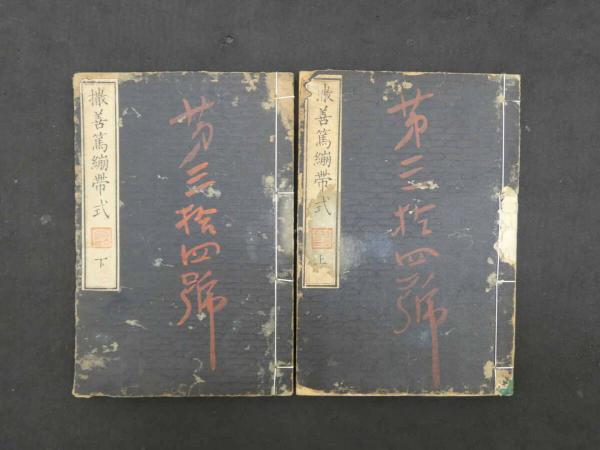 撒善篤繃帶式
上
第三拾四號
撒善篤繃帶式
下
第三拾四號